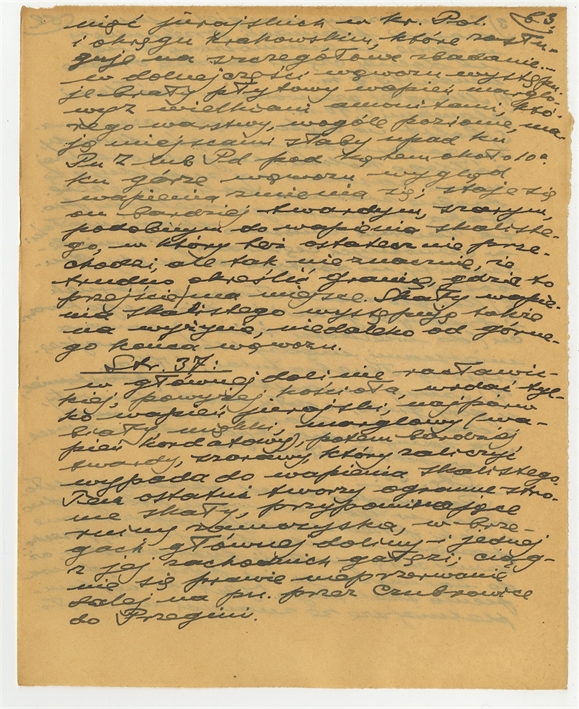 63
nięć jurajskich w kr. Pol.
i okręgu krakowskim, które zasłu-
guje na szczegółowe zbadanie.
w dolnej części wąwozu występu-
je biały płytowy wapień marglo-
wy z wielkiemi amonitami, któ-
rego warstwy, wogóle poziome, ma-
ją miejscami słaby upad ku
Pn Z lub Pd pod kątem około 10°
ku górze wąwozu wygląd
wapienia zmienia się, staje się
on bardziej twardym, szarym,
podobnym do wapienia skaliste-
go, w który też ostatecznie prze-
chodzi, ale tak nieznacznie, że
trudno określić granicę, gdzie to
przejście ma miejsce. Skały wapie-
nia skalistego występują także
na wyżynie, niedaleko od górne-
go końca wąwozu.
Str. 37:
w głównej dolinie racławic-
kiej powyżej kościoła, widać tyl-
ko wapień jurajski, najpierw
biały miękki, marglowy (wa-
pień kordatowy), potem bardziej
twardy, szarawy, który zaliczyć
wypada do wapienia skalistego.
Ten ostatni tworzy ogromne stro-
me skały, przypominające
ruiny zamczyska, w brze-
gach głównej doliny i jednej
z jej zachodnich gałęzi, ciąg-
nie się prawie nieprzerwanie
dalej na pn. przez Czubrowice
do Przegini.